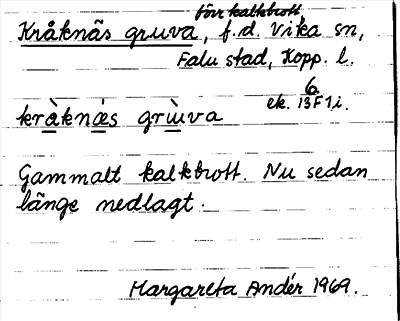 förr kalkbrott
Kråknäs gruva, f.d. Vika sn,
Falu stad, Kopp. l.
6
ek. 13F1i.
kråknäs gruva
Gammalt kalkbrott. Nu sedan
länge nedlagt.
Margareta Andér 1969.